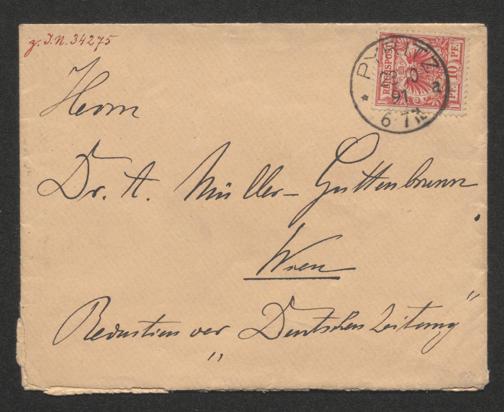 z. I. N. 34275
REICHSPOST
10 PF.
91
6-7N.
Herrn
Dr. A. Müller-Guttenbrunn
Wien
Redaction der „Deutschen Zeitung“